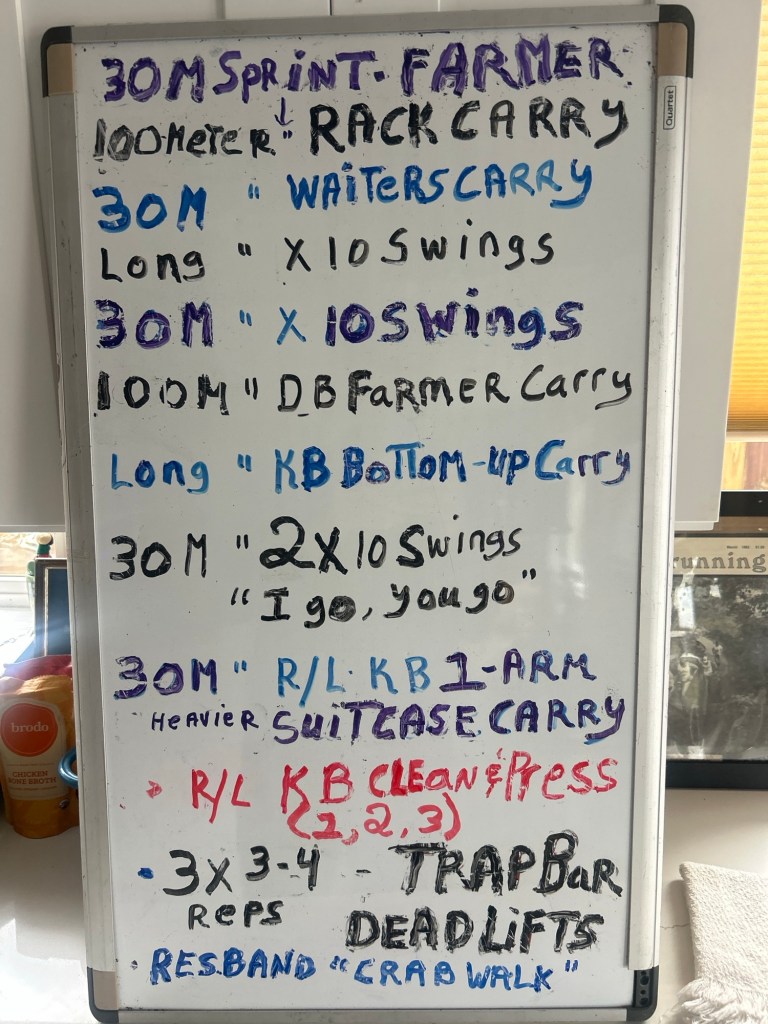 30M SPRINT - FARMER
100 METER " ↓ RACK CARRY
30M " WAITERS CARRY
Long " X 10 Swings
30M " X 10 Swings
100M " DB FARMER Carry
Long " KB BOTTOM-UP Carry
30M " 2X10 Swings
"I go, you go"
30M " R/L KB 1-ARM
HEAVIER SUITCASE CARRY
• R/L KB CLEAN & PRESS
(1, 2, 3)
• 3x 3-4 - TRAP BaR
Reps DEADLiFTS
• RES.BAND "CRAB WALK"
Quartet
running
brodo
CHICKEN
BONE BROTH